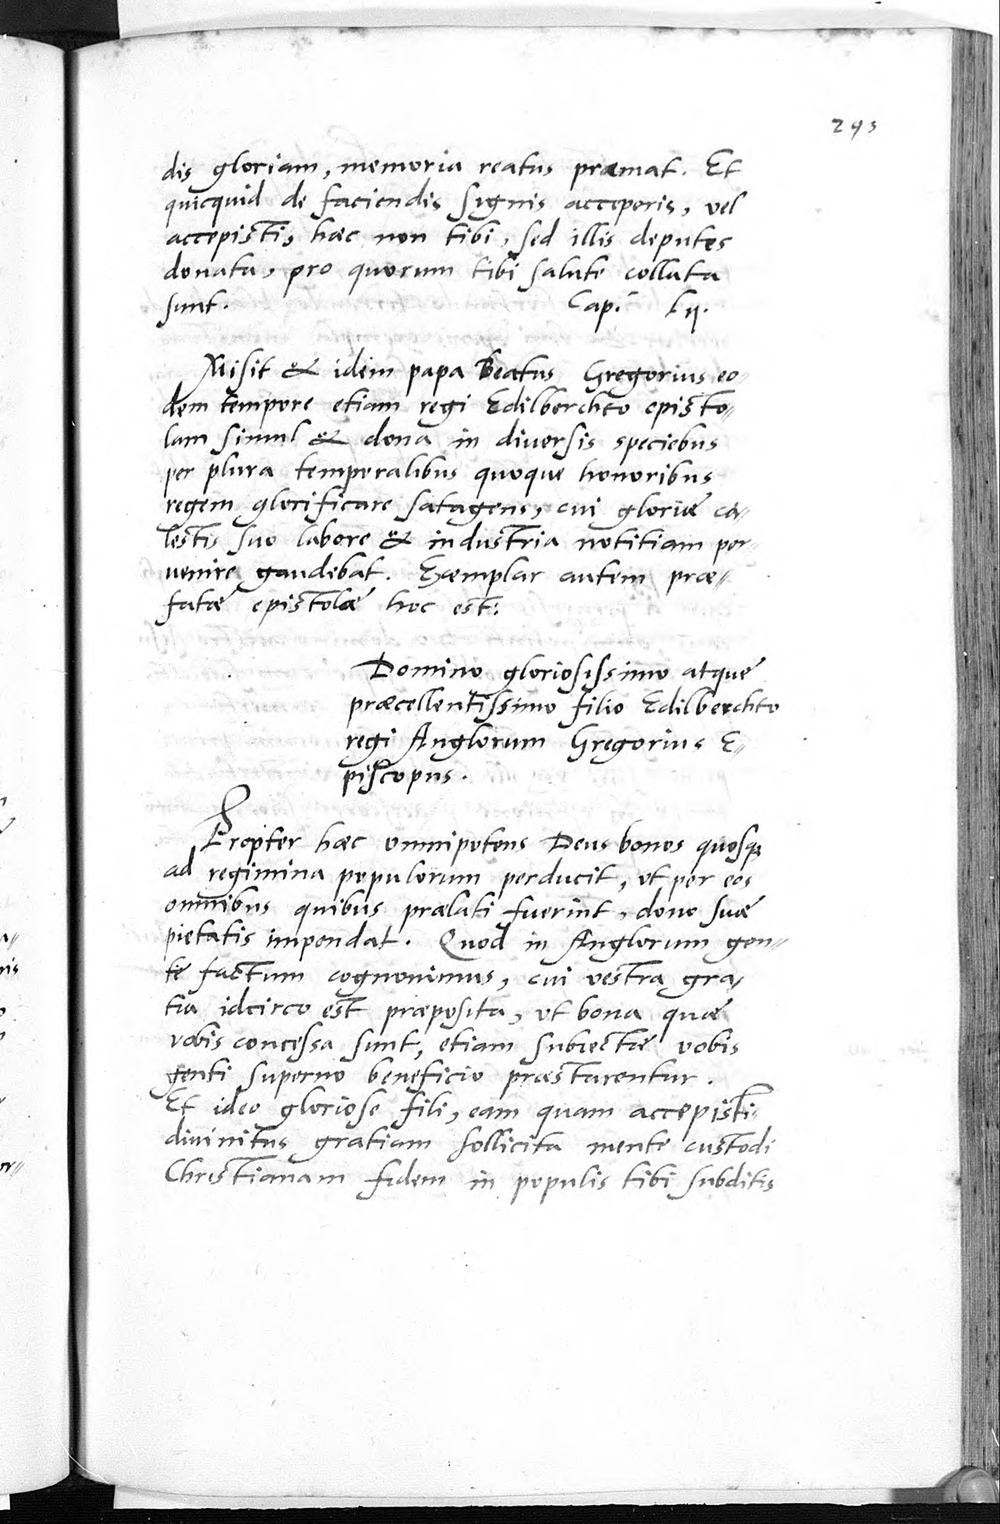 293
dis gloriam, memoria reatus præmat. Et
quicquid de faciendis signis acceperis, vel
accepisti, hæc non tibi, sed illis deputes
donata, pro quorum tibi salute collata
sunt. Cap. lij.
Misit & idem papa beatus Gregorius eo-
dem tempore etiam regi Edilberchto episto-
lam simul & dona in diversis speciebus
per plura temporalibus quoque honoribus
regem glorificare satagens, cui gloriæ cæ-
lestis suo labore & industria notitiam per-
venire gaudebat. Exemplar autem præ-
fatæ epistolæ hoc est:
Domino gloriosissimo atque
præcellentissimo filio Edilberchto
regi Anglorum Gregorius E-
piscopus.
Propter hæc omnipotens Deus bonos quosq;
ad regimina populorum perducit, ut per eos
omnibus quibus prælati fuerint, dono suæ
pietatis impendat. Quod in Anglorum gen-
te factum cognovimus, cui vestra gra-
tia idcirco est præposita, ut bona quæ
vobis concessa sunt, etiam subiectæ vobis
genti superno beneficio præstarentur.
Et ideo gloriose fili, eam quam accepisti
divinitus gratiam sollicita mente custodi
Christianam fidem in populis tibi subditis